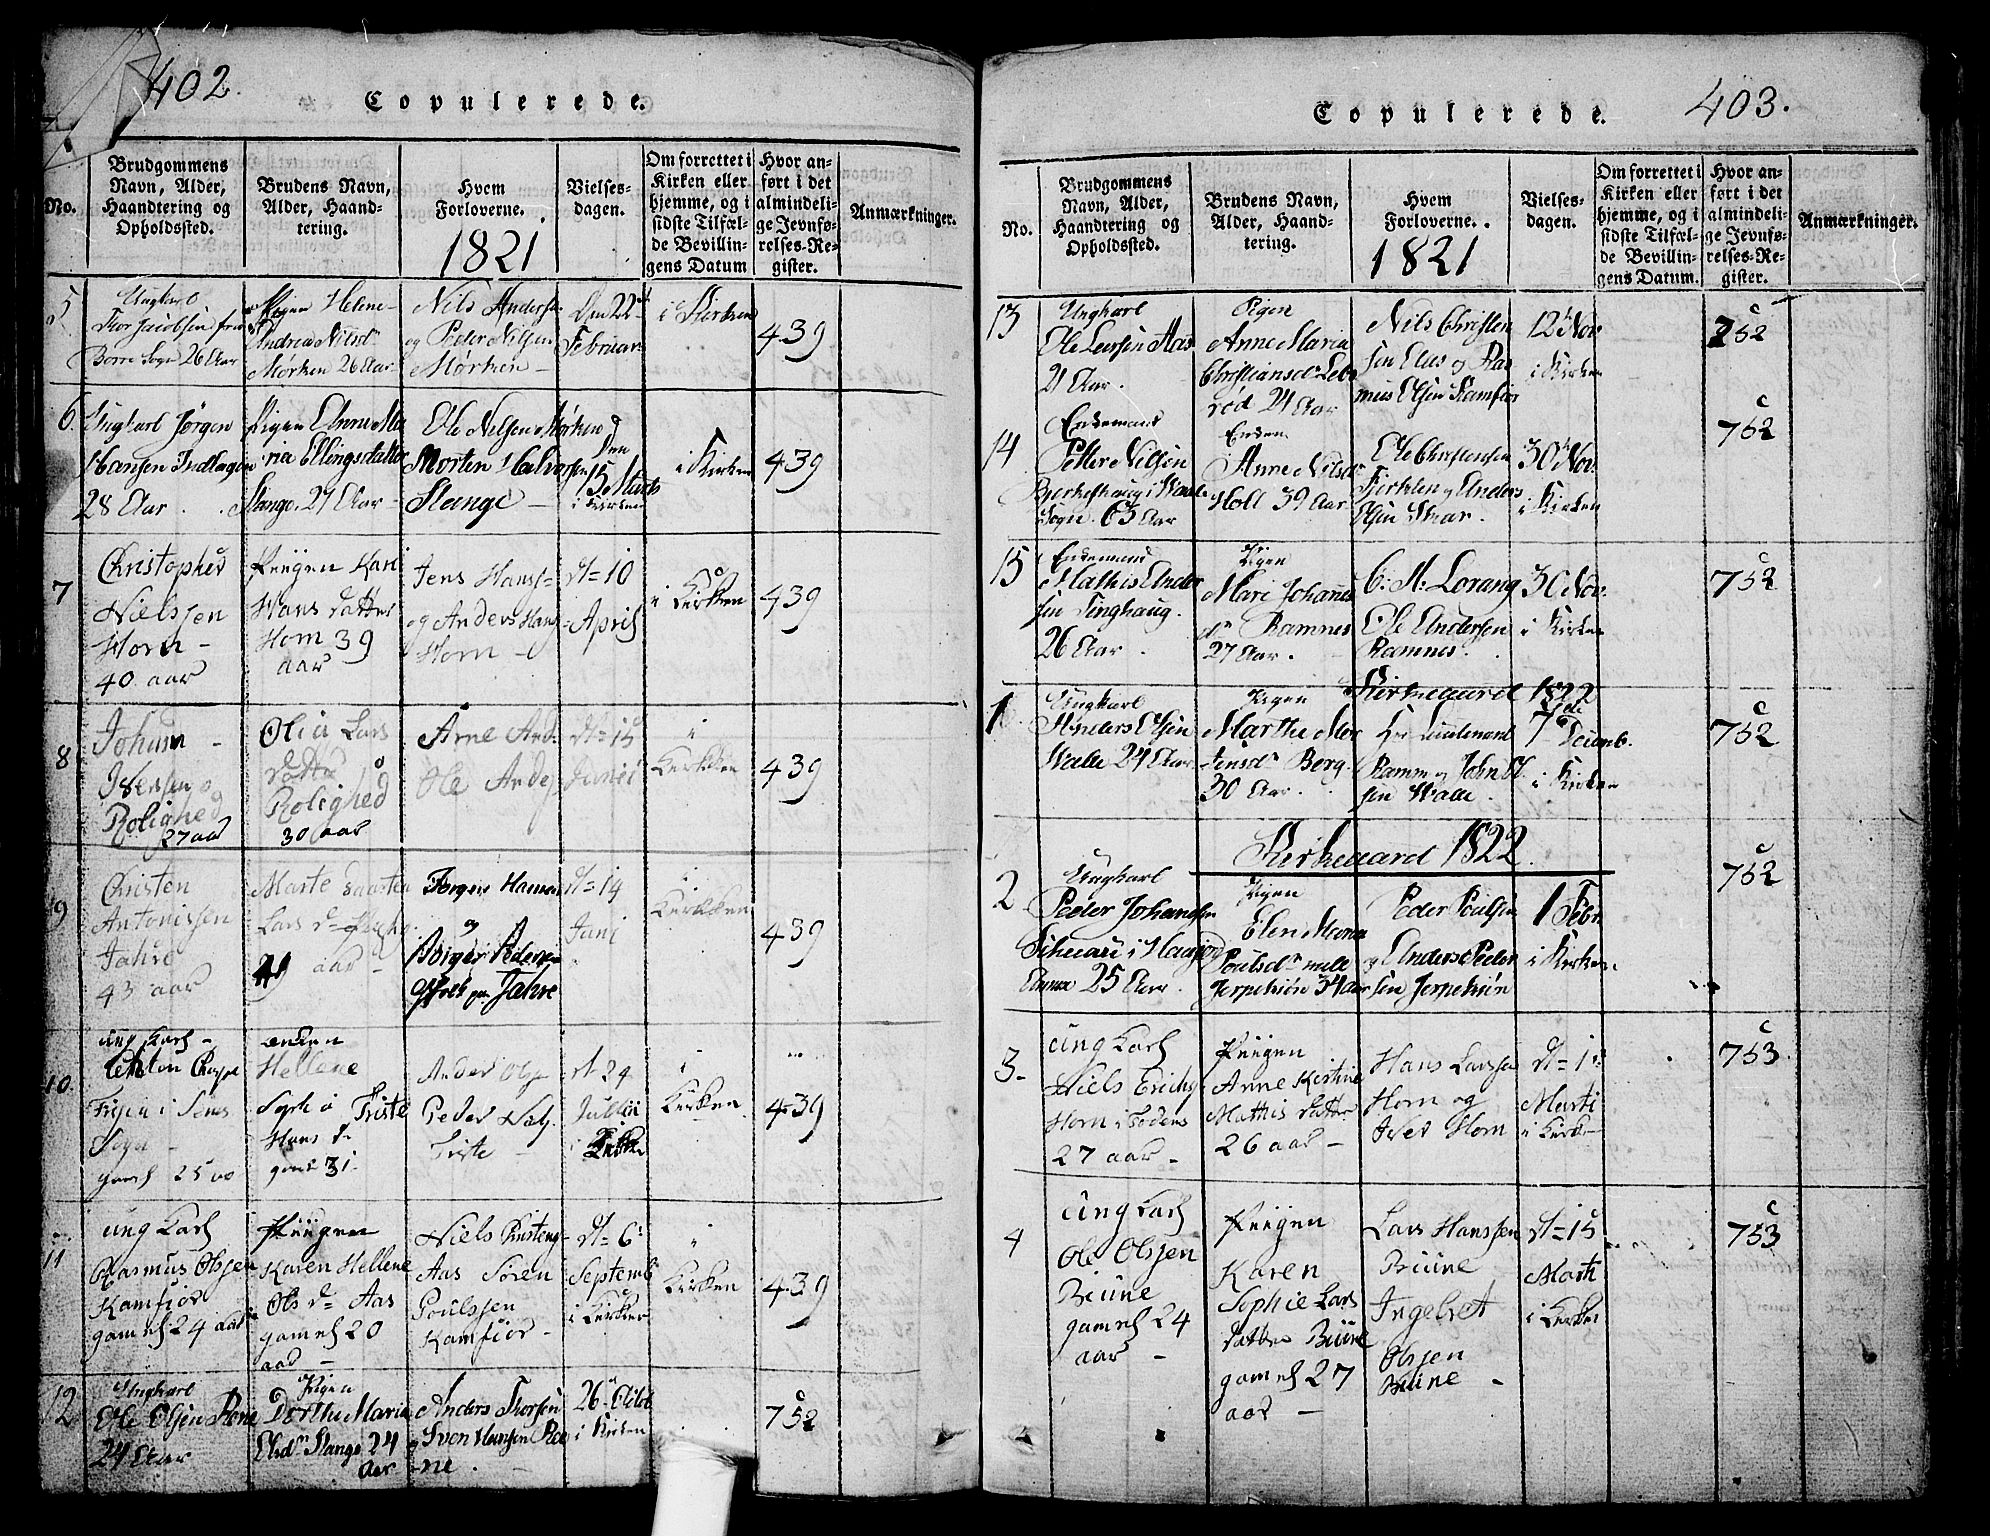 402.
Copulerede.
No.
Brudgommens
Navn, Alder,
Haandtering og
Opholdssted.
Brudens Navn,
Alder, Haand-
tering.
Hvem
Forloverne.
1821
Vielses-
dagen.
Om forrettet i
Kirken eller
hjemme, og i
sidste Tilfæl-
de Bevillin-
gens Datum
Hvor an-
ført i det
almindeli-
ge Jevnfø-
relses-Re-
gister.
Anmærkninger.
5
Ungkarl
Thor Jacobsen fra
Borre Sogn 26 Aar
Pigen Helene
Andrea Nilsd
Mørken 26 Aar
Nils Andersen
og Peder Nilsen
Mørken
Den 22
Februar
i Kirken
439
6.
Ungkarl Jørgen
Hansen Indlagen
28 Aar
Pigen Anne Ma
ria Ellingsdatter
Slange, 27 Aar
Ole Nilsen Mørken
Morten Halvorsen
Slange
Den
15 Marts
i Kirken
i Kirken
439
7
Christopher
Nielssen
Horn
40 aar
Piigen Kari
Hans datter
Horn 39
aar
Jens Hanss
og Anders Hans
Horn
d= 10
April
i Kirken
439
8
Johan
Iversen
Rolighed
27 aar
Olia Lars
datter
Rolighed
30 aar
Arne And
Ole Anders
d= 15
Junii
i
Kirkken
439
9
Christen
Antonissen
Jahre
43 aar
Marte
Lars d=
aar
Jørgen Hansen
og
Jahre
d= 14
Juni
i
Kirkken
439
10
ung Karl
i Sems
Sogn
gamel 25
enken
Hellene
Sophia Friste
Hans d=
gamel 31
Ander Olsen
Peder
Friste
d= 24
Jullii
i Kirken
i
Kirken
439
11
ung Karl
Rasmus Olsen
Kamfior
gamel 24 aar
Piigen
Karen Hellene
Ols d= Aas
gamel 20
aar
Niels Christens
Aas Søren
Poulssen
Kamfior
d= 6
Septemb
i Kirken
i
Kirken
439
12
Ungkarl
Ole Olsen Rene
24 Aar
Pigen
Dorthe Maria
Slange 24
Aar
Anders Thorsen
og Sven Hansen Re
ne
26 Octob
i Kirken
c
752
403.
Copulerede.
No.
Brudgommens
Navn, Alder,
Haandtering og
Opholdssted.
Brudens Navn,
Alder, Haand-
tering.
Hvem
Forloverne.
1821
Vielses-
dagen.
Om forrettet i
Kirken eller
hjemme, og i
sidste Tilfæl-
de Bevillin-
gens Datum.
Hvor an-
ført i det
almindeli-
ge Jevnfø-
relses-Re-
gister.
Anmærkninger.
13
Ungkarl
Ole Larsen Aas
21 Aar.
Pigen
Anne Maria
Christiansd
rød 24 Aar
Nils Christen
sen Aas og Ras
mus Olsen Kamfior
12 Nov
i Kirken
c
752
14
Enkemand
Petter Nilsen
Bjerkeshaug i Vaale
Sogn 63 Aar
Enken
Anne Nilsd
Holl 39 Aar
Ole Christensen
og Anders
Olsen
30 Nov.
i Kirken
c
752
15
Enkemand
Mathis Ander
sen Tinghaug.
26 Aar
Pigen
Mari Johannes
d Ramnes
27 Aar.
C: A: Lorang
Ole Andersen
Ramnes.
30 Nov.
i Kirken
c
752
Kirkeaaret 1822
1
Ungkarl
Anders Olsen
Valle 24 Aar
Pigen
Marthe Mor
tensd Berg
30 Aar.
Hr Lieutenant
Ramm og John Ol
sen Valle.
7de
Decemb.
i Kirken
c
752
Kirkeaard 1822.
2
Ungkarl
Peder Johansen
i
25 Aar.
Pigen
Elen Maria
Poulsd
Jerpekiøn 34 Aar
Peder Poulsen
og Anders Peder
sen Jerpekiøn
1 Febr.
i Kirken
c
752
3
ung Karl
Niels Erichs
Horn i Bodens
27 aar
Piigen
Anne Kirstine
Mathis datter
26 aar
Hans Larssen
Horn og
Iver Horn
d= 1
Marti
i Kirk
c
753
4
ung Karl
Ole Olsen
Briine
gamel 24
aar
Piigen
Karen
Sophie Lars
datter Briine
gamel 27
aar
Lars Hanssen
Briine
Ingebret
Olsen
Briine
d= 15
Marti
i Kirken
c
753